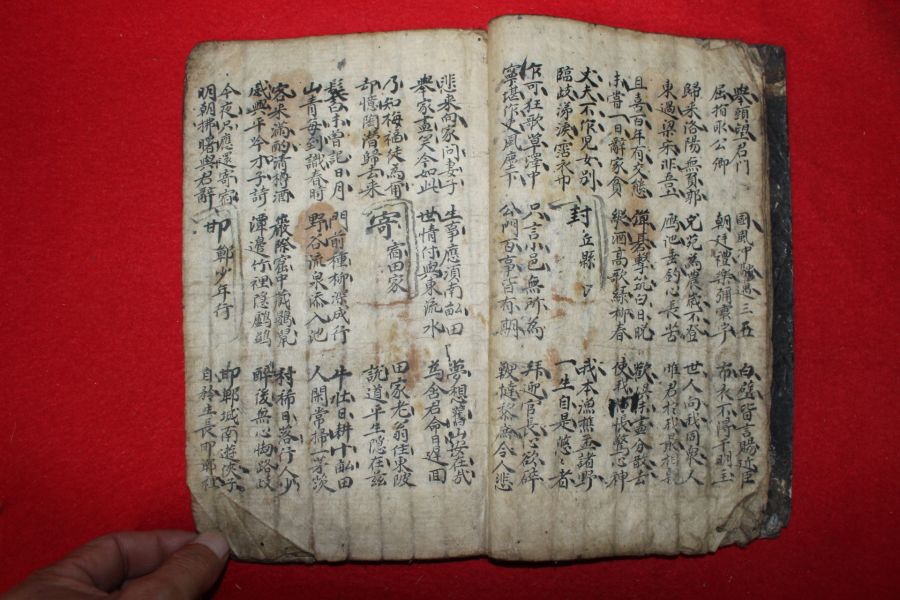 擧頭望君門
屈指取公卿
國風冲融邁三五
朝廷禮樂彌寰宇
白璧皆言賜近臣
布衣不得干明主
歸来洛陽無負郭
東過梁宋非吾土
兎苑為農歲不登
鴈池垂釣心長苦
世人向我同衆人
唯君於我最相親
且喜百年有交態
未甞一日辭家貧
彈碁擊筑白日晚
縱酒高歌綠柳春
歡娛未盡分散去
使我惆悵驚心神
丈夫不作兒女別
臨歧涕淚霑衣巾
封丘縣
我本漁樵孟諸野
一生自是悠〻者
乍可狂歌草澤中
寧堪作吏風塵下
只言小邑無所為
公門百事皆有期
拜迎官長心欲碎
鞭撻黎庶令人悲
悲来向家問妻子
擧家盡笑今如此
生事應須南畝田
世情付與東流水
夢想舊山安在哉
為含君命日遲回
乃知梅福徒為爾
却憶陶潛歸去来
寄宿田家
田家老翁住東陂
說道平生隱在玆
鬂白未曾記日月
山青每到識春時
門前種柳深成行
野谷流泉添入池
牛壯日耕十畝田
人閑常掃一茅茨
客来滿酌清樽酒
感興平吟才子詩
巖際窟中藏鼴鼠
潭邊竹裡隱鸕鷀
村稀日落行人少
醉後無心怕路歧
今夜只應還寄宿
明朝拂曙與君辭
邯鄲少年行
邯鄲城南遊俠子
自矜生長邯鄲裡